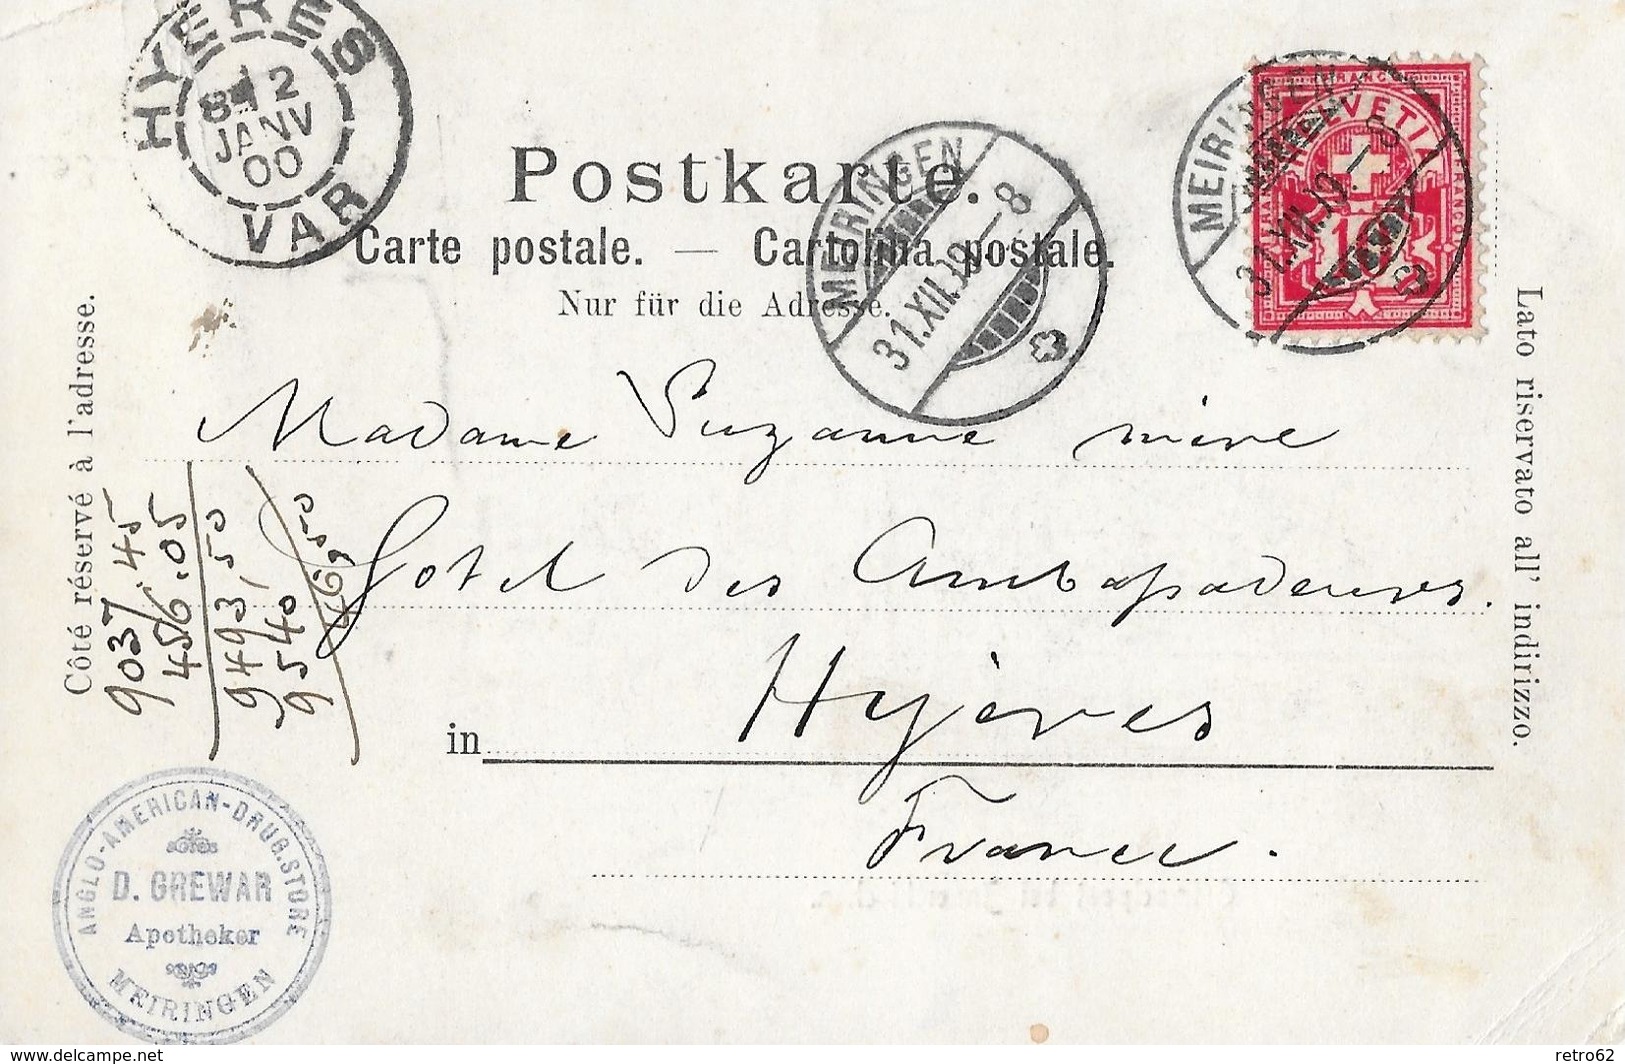 HYERES
8E 12
JANV
00
VAR
MEIRINGEN
31.XII.19.–8
MEIRINGEN
31.XII.19.–8
FRANCO
HELVETIA
FRANCO
FRANCO
10
Postkarte.
Carte postale. — Cartolina postale.
Nur für die Adresse.
Côté réservé à l'adresse.
Lato riservato all' indirizzo.
Madame Suzanne
Hotel des Ambassadeurs.
in Hyères
France.
9037,45
456,05
9493,50
9540
46,50
ANGLO-AMERICAN-DRUG.STORE
D. GREWAR
Apotheker
MEIRINGEN
www.delcampe.net
retro62